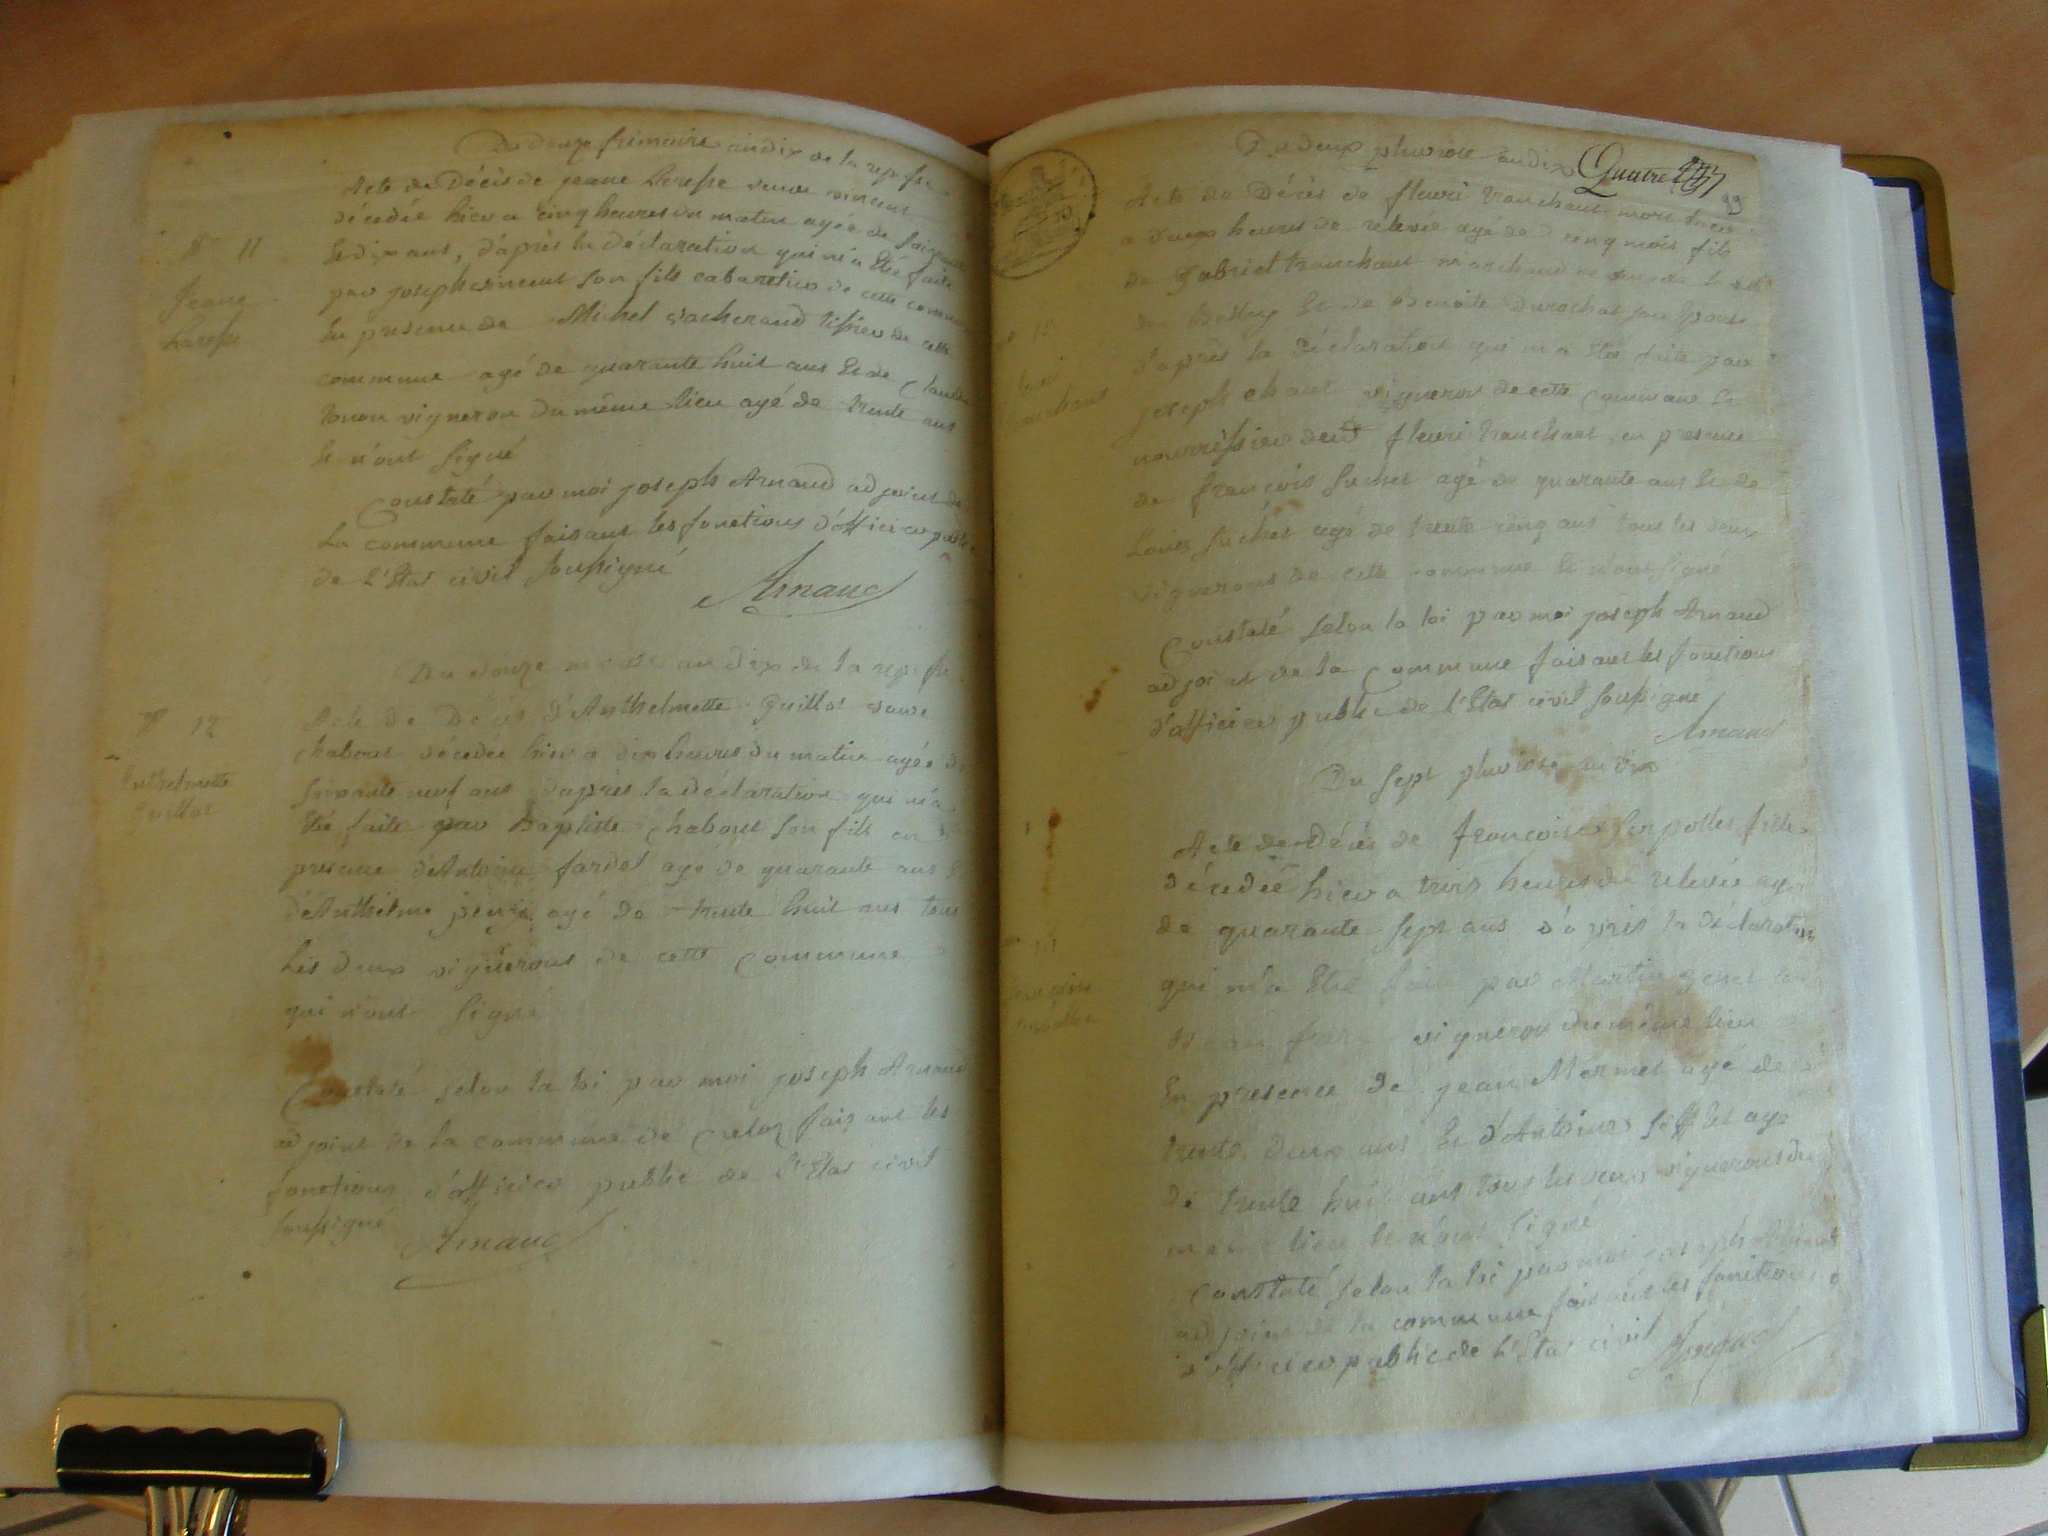 Du douze frimaire an dix de la rep fse
Acte de Décès de jeane veuve vincent
décédée hier a cinq heures du matin agée de soixante
et dix ans, d'après la déclaration qui m'a Eté faite
par joseph vincent son fils cabaretier de cette commune
En presence de Michel vacherand tissieu de cette
commune agé de quarante huit ans Et de Claude
vigneron du même lieu agé de trente ans
Et n'ont signé
Constaté par moi joseph Arnaud adjoint de
La commune faisant les fonctions d'officier public
de L'Etat civil soussigné
Arnaud
N° 11
Jeane
Du douze an dix de la rep fse
Acte de Décès d'Anthelmette Guillot veuve
Chabout décédée hier a dix heures du matin agée de
soixante neuf ans d'après la déclaration qui m'a
Eté faite par Baptiste Chabout son fils en
presence d'Antoine fardel agé de quarante ans Et
d'Anthelme agé de trente huit ans tous
Les deux vignerons de cette commune
qui n'ont signé
Constaté selon la loi par moi joseph Arnaud
adjoint de la commune de faisant les
fonctions d'officier public de L'Etat civil
soussigné
Arnaud
N° 12
Anthelmette
Guillot
Du deux pluviose an dix
Quatre
99
Acte de Décès de fleuri tranchant mort hier
a deux heures de relevée agé de cinq mois fils
de Gabriel tranchant marchand
de Belley Et de Benoite Durochat son Epouse
d'après la Déclaration qui m'a Eté faite par
joseph vigneron de cette commune Et
nourrissier dud fleuri tranchant, en presence
de françois suchet agé de quarante ans Et de
Louis suchet agé de trente cinq ans tous les deux
vignerons de cette commune Et n'ont signé
Constaté selon la loi par moi joseph Arnaud
adjoint de la Commune faisant les fonctions
d'officier public de L'Etat civil soussigné
Arnaud
Du sept pluviose an dix
Acte de Décès de françoise fille
décédée hier a trois heures de relevée agée
de quarante sept ans d'après la déclaration
qui m'a Eté faite par Martin
vigneron du même lieu
En presence de jean Mermet agé de
trente deux ans Et d'Antoine agé
de trente huit ans tous les deux vignerons du
même lieu Et n'ont signé
Constaté selon la loi par moi joseph Arnaud
adjoint de la commune faisant les fonctions
d'officier public de L'Etat civil
Arnaud